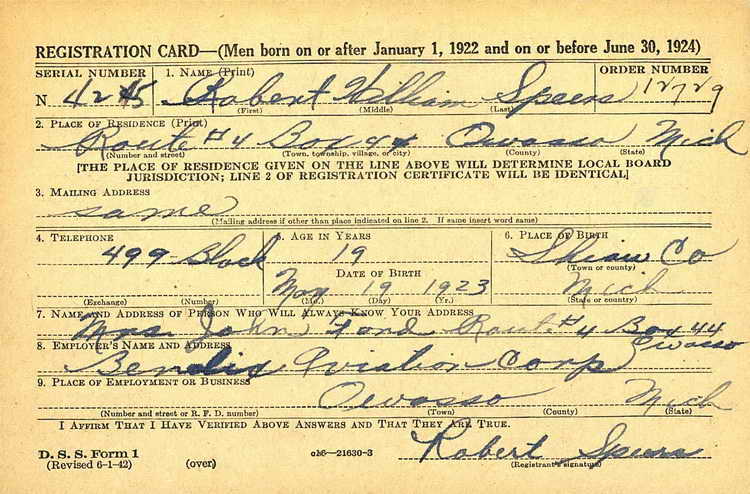 REGISTRATION CARD—(Men born on or after January 1, 1922 and on or before June 30, 1924)
SERIAL NUMBER 1. NAME (Print) ORDER NUMBER
N 4245 Robert William Speers 12729
(First) (Middle) (Last)
2. PLACE OF RESIDENCE (Print)
Route #4 Box 44 Owosso Mich
(Number and street) (Town, township, village, or city) (County) (State)
[THE PLACE OF RESIDENCE GIVEN ON THE LINE ABOVE WILL DETERMINE LOCAL BOARD
JURISDICTION; LINE 2 OF REGISTRATION CERTIFICATE WILL BE IDENTICAL]
3. MAILING ADDRESS
same
(Mailing address if other than place indicated on line 2. If same insert word same)
4. TELEPHONE 5. AGE IN YEARS 6. PLACE OF BIRTH
499-Black 19 Shiaw Co
(Town or county)
DATE OF BIRTH
May 19 1923 Mich
(Exchange) (Number) (Mo.) (Day) (Yr.) (State or country)
7. NAME AND ADDRESS OF PERSON WHO WILL ALWAYS KNOW YOUR ADDRESS
Mrs John Ford Route #4 Box 44
Owosso
8. EMPLOYER'S NAME AND ADDRESS
Bendix Aviation Corp
9. PLACE OF EMPLOYMENT OR BUSINESS
Owosso Mich
(Number and street or R. F. D. number) (Town) (County) (State)
I AFFIRM THAT I HAVE VERIFIED ABOVE ANSWERS AND THAT THEY ARE TRUE.
D. S. S. Form 1
(Revised 6-1-42) (over) 16—21630-3 Robert Speers
(Registrant's signature)